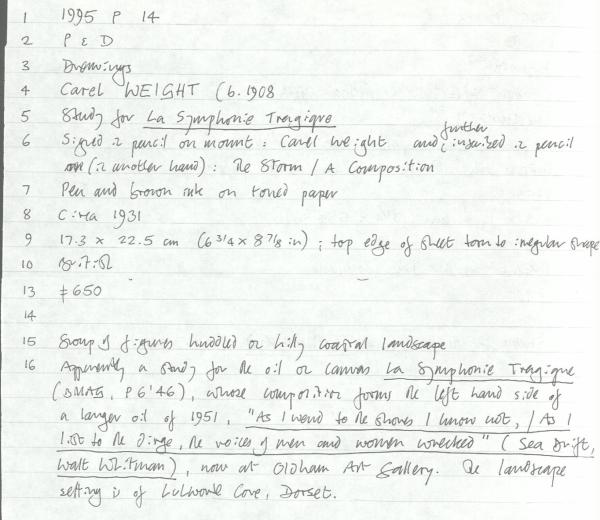 1 1995 P 14
2 P & D
3 Drawings
4 Carel WEIGHT (b. 1908
5 Study for La Symphonie Tragique
6 Signed in pencil on mount: Carel Weight and further inscribed in pencil
(in another hand): The Storm / A Composition
7 Pen and brown ink on toned paper
8 Circa 1931
9 17.3 x 22.5 cm (6 3/4 x 8 7/8 in); top edge of sheet torn to irregular shape
10 British
13 £650
14
15 Group of figures huddled on hilly coastal landscape
16 Apparently a study for the oil on canvas La Symphonie Tragique
(BMAG, P 6'46), whose composition forms the left hand side of
a larger oil of 1951, "As I wend to the shores I know not, / As I
list to the dirge, the voices of men and women wrecked" (Sea Drift,
Walt Whitman), now at Oldham Art Gallery. The landscape
setting is of Lulworth Cove, Dorset.